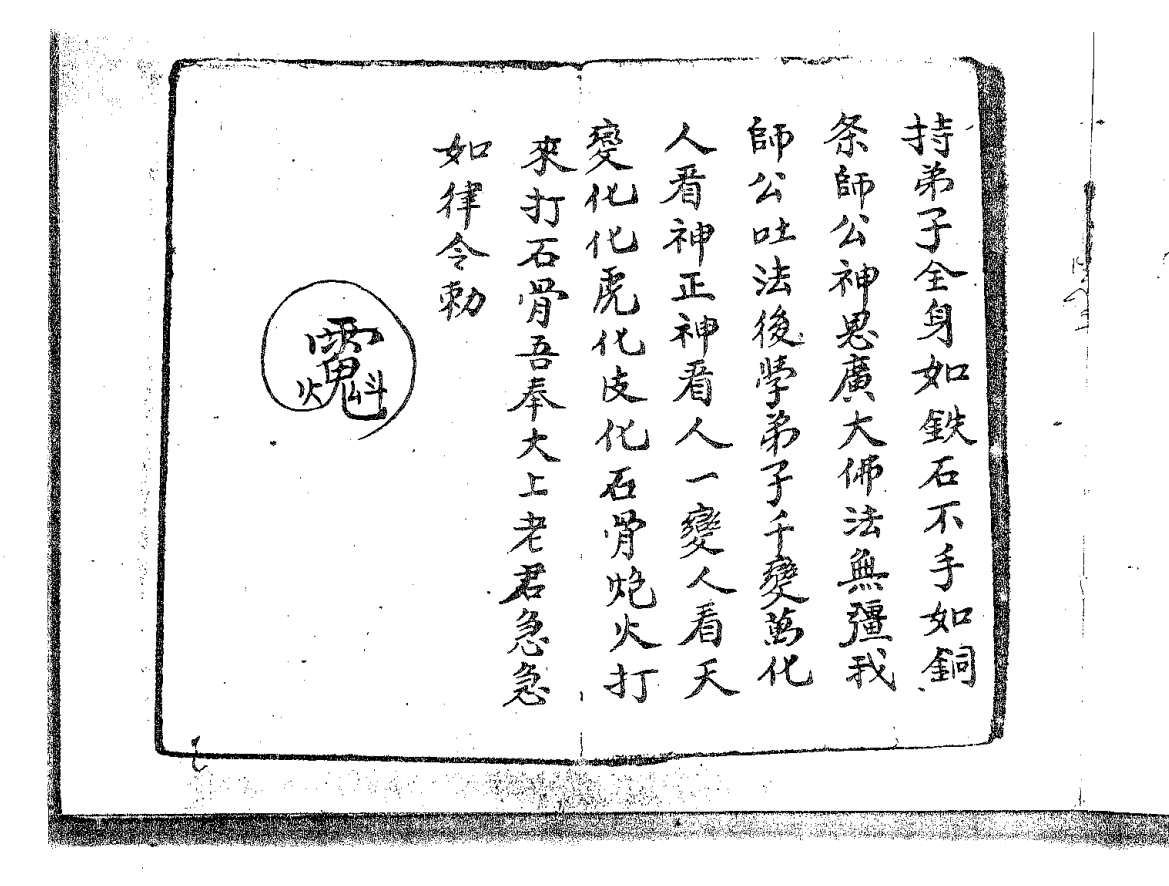 持弟子全身如鉄石不手如銅
条師公神恩廣大佛法無彊我
師公吐法後學弟子千變萬化
人看神正神看人一變人看天
變化化虎化皮化石骨炮火打
來打石骨吾奉大上老君急急
如律令勅